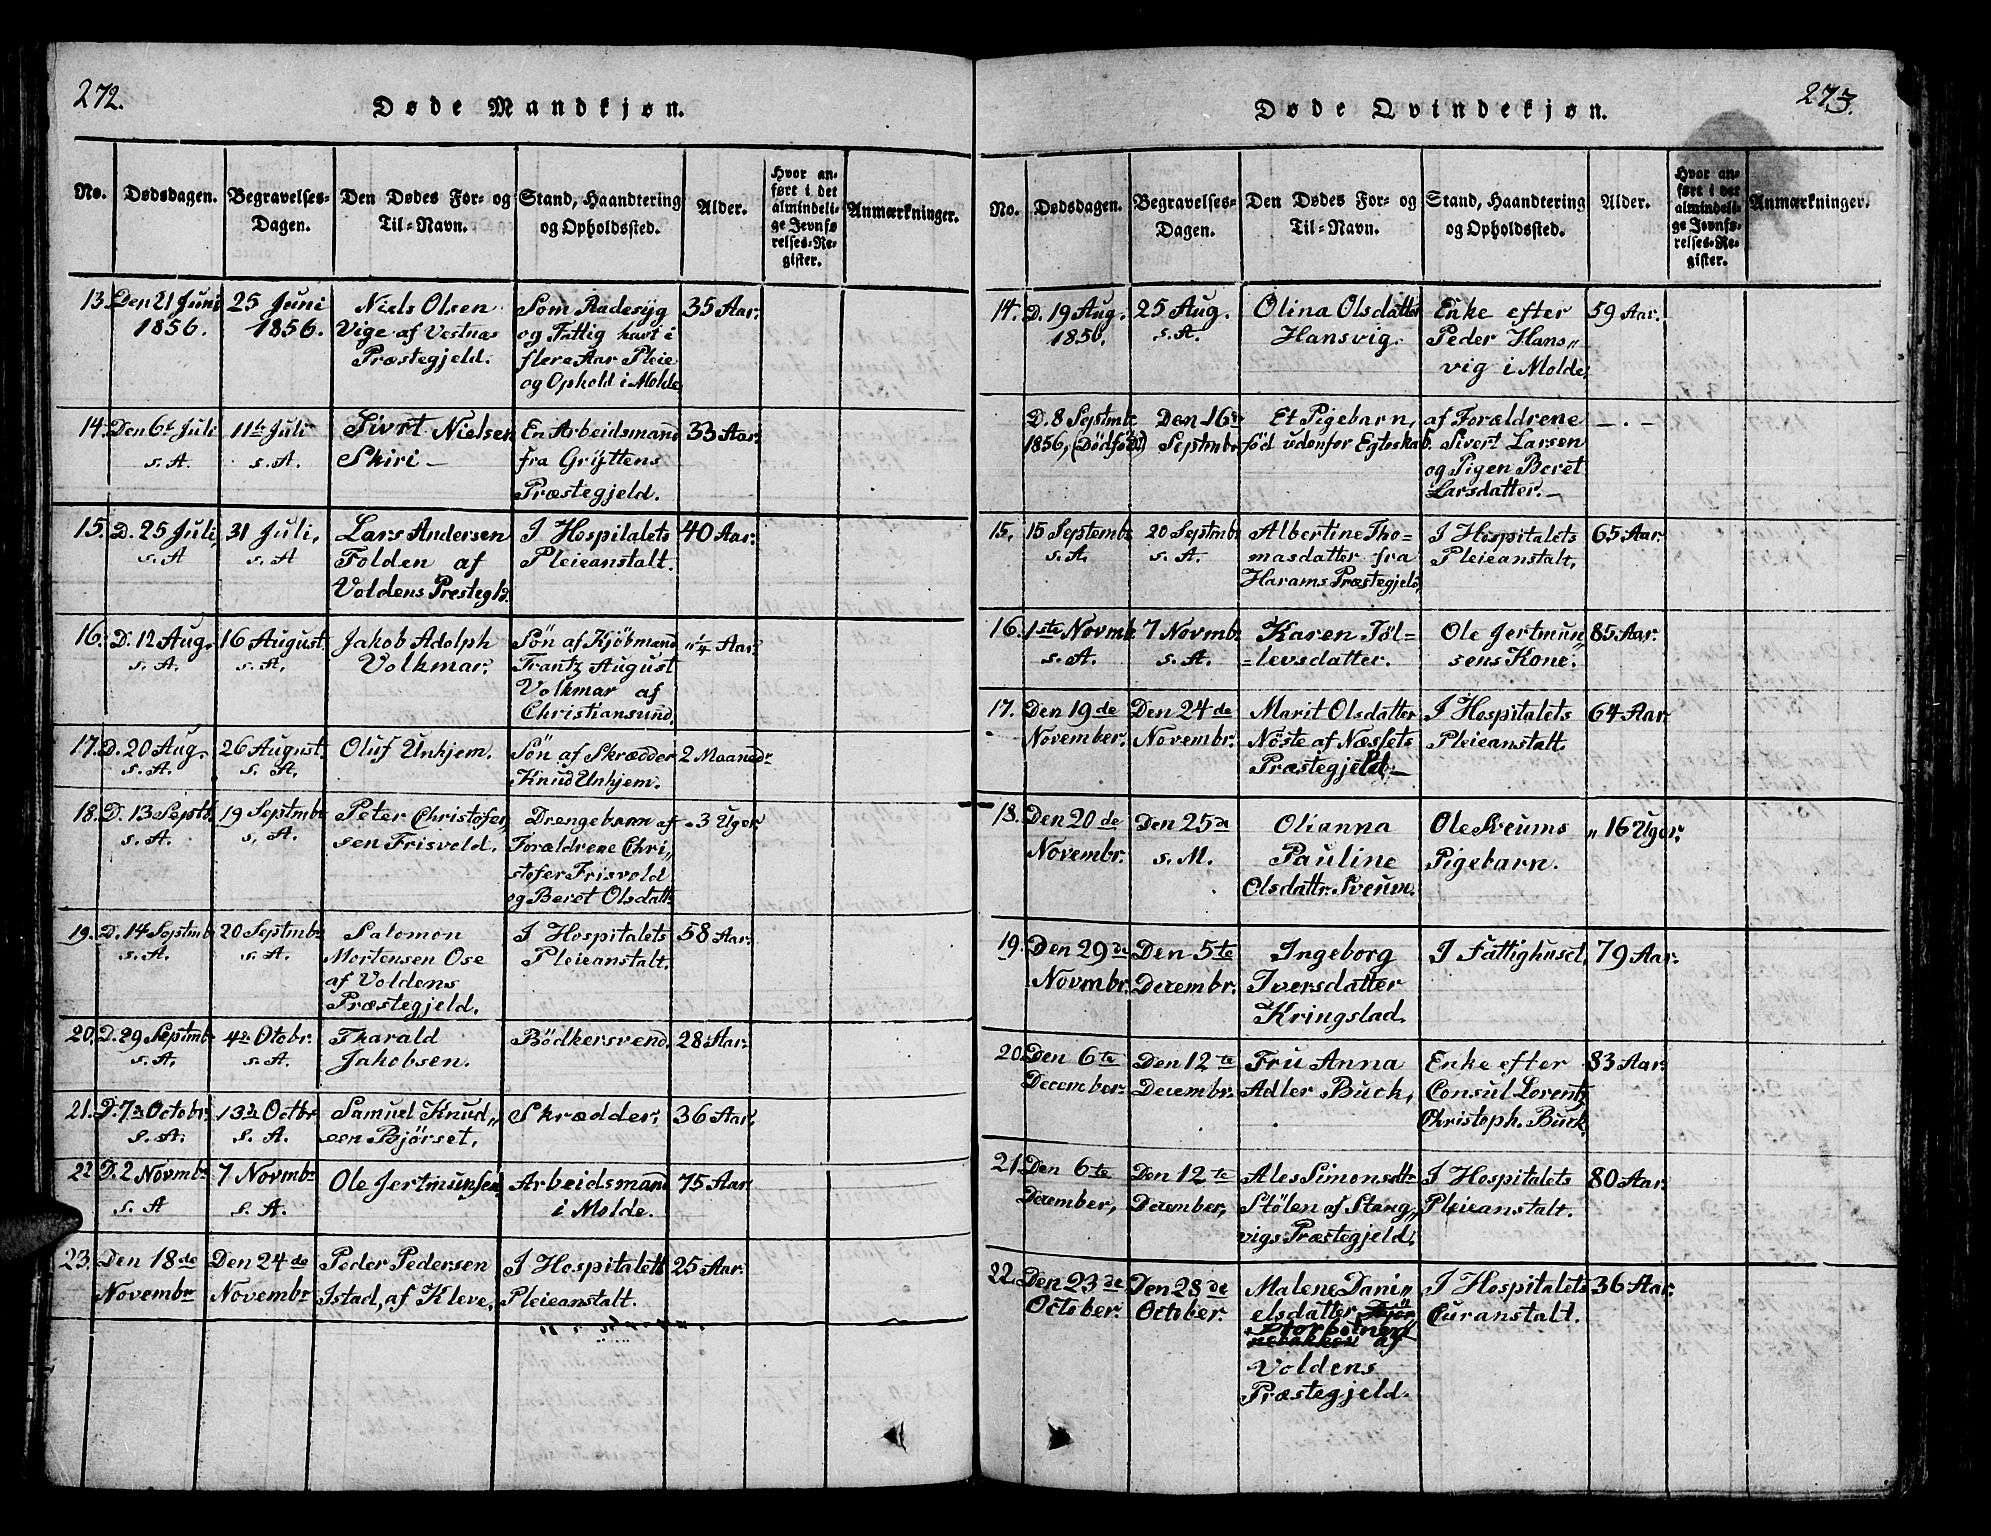 272.
Døde Mandkjøn.
No.
Dødsdagen.
Begravelses-
Dagen.
Den Dødes For- og
Til-Navn.
Stand, Haandtering
og Opholdssted.
Alder.
Hvor an-
ført i det
almindeli-
ge Jevnfø-
relses-Re-
gister.
Anmærkninger.
13. Den 21 Juni
1856.
25 Juni
1856.
Niels Olsen
Vige af Vestnæs
Præstegjeld.
Som Radesyg
og Fattig havt i
flere Aar Pleie
og Ophold i Molde
35 Aar.
14. Den 6te Juli
s. A.
11te Juli
s. A.
Sivrt Nielsen
Skiri
En Arbeidsmand
fra Gryttens
Præstegjeld.
33 Aar.
15. D. 25 Juli,
s. A
31 Juli,
s. A
Lars Andersen
Folden af
Voldens Prestegld.
I Hospitalets
Pleieanstalt.
40 Aar.
16. D. 12 Aug.
s. A.
16 August.
s. A.
Jakob Adolph
Volkmar.
Søn af Kjøbmand
Frantz August
Volkmar af
Christiansund.
" 1/4 Aar.
17. D. 20 Aug.
s. A.
26 August.
s. A.
Oluf Unhjem.
Søn af Skrædder
Knud Unhjem.
2 Maaned.
18. D. 13 Septb.
s. A.
19 Septmbr
s, A.
Peter Christofer,
sen Frisvold.
Drengebarn af
Forældrene Chri,,
stofer Frisvold
og Beret Olsdatt.
" 3 Uger.
19. D. 14 Septmb.
s. A.
20 Septmbr
s. A.
Salomon
Mortensen Ose
af Voldens
Præstegjeld.
I Hospitalets
Pleieanstalt.
58 Aar.
20. D. 29 Septmb.
s. A.
4de Otobr.
s. A.
Tharald
Jakobsen.
Bödkersvend.
28 Aar.
21. D. 7de Octobr.
s. A.
13de Octbr.
s. A.
Samuel Knud,,
sen Bjørset.
Skrædder.
36 Aar.
22. D. 2 Novmbr
s. A
7 Novmbr
s. A.
Ole Jertmunsen
Arbeidsmand
i Molde.
75 Aar
23. Den 18de
Novembr
Den 24de
Novembr
Peder Pedersen
Istad, af Kleve,
I Hospitalets
Pleieanstalt.
25 Aar.
273.
Døde Qvindekjøn.
No.
Dødsdagen.
Begravelses-
Dagen.
Den Dødes For- og
Til-Navn.
Stand, Haandtering
og Opholdssted.
Alder.
Hvor an-
ført i det
almindeli-
ge Jevnfø-
relses-Re-
gister.
Anmærkninger.
14. D. 19 Aug.
1856.
25 Aug.
s. A.
Olina Olsdatter
Hansvig.
Enke efter
Peder Hans,,
vig i Molde,
59 Aar.
D. 8 Septmbr
1856, (Dödfødt)
Den 16de
Septmbr.
Et Pigebarn,
föd udenfor Egteskab.
af Forældrene
Sivert Larsen
og Pigen Beret
Larsdatter.
— . —
15. 15 Septemb.
s. A.
20 Septmb.
s. A.
Albertine Tho-
masdatter fra
Harams Præstegjeld,
I Hospitalets
Pleieanstalt.
65 Aar.
16. 1ste Novmb.
s. A.
7 Novmb.
s. A.
Karen Töl-
=levsdatter.
Ole Jertmun,,
sens Kone.
85 Aar.
17. Den 19de
November.
Den 24de
Novembr.
Marit Olsdatter
Nöste af Næssets
Præstegjeld.
I Hospitalets
Pleieanstalt.
64 Aar.
18. Den 20de
Novembr.
Den 25de
s. M.
Olianna
Pauline
Olsdattr. Sveum.
Ole Sveums
Pigebarn.
" 16 Uger.
19. Den 29de
Novmbr.
Den 5te
Decembr.
Ingeborg
Iversdatter
Kringstad.
I Fattighuset.
79 Aar.
20. Den 6te
December.
Den 12te
Decembr.
Fru Anna
Adler Buck,
Enke efter
Consul Lorentz
Christoph. Buck.
83 Aar.
21. Den 6te
December,
Den 12te
December,
Ales Simonsdtr
Stölen af Stang,,
vigs Præstegjeld.
I Hospitalets
Pleieanstalt.
80 Aar.
22. Den 23de
October.
Den 28de
October.
Malene Dani,,
elsdatter
af
Voldens
Præstegjeld.
I Hospitalets
Curanstalt.
36 Aar.